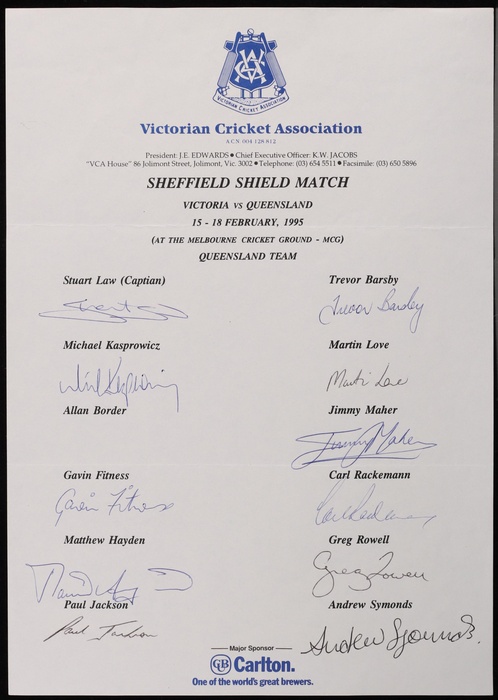 VCA
VICTORIAN CRICKET ASSOCIATION
Victorian Cricket Association
A.C.N. 004 128 812
President: J.E. EDWARDS ● Chief Executive Officer: K.W. JACOBS
"VCA House" 86 Jolimont Street, Jolimont, Vic. 3002 ● Telephone: (03) 654 5511 ● Facsimile: (03) 650 5896
SHEFFIELD SHIELD MATCH
VICTORIA vs QUEENSLAND
15 - 18 FEBRUARY, 1995
(AT THE MELBOURNE CRICKET GROUND - MCG)
QUEENSLAND TEAM
Stuart Law (Captian) Trevor Barsby
Trevor Barsby
Michael Kasprowicz Martin Love
Martin Love
Allan Border Jimmy Maher
Jimmy Maher
Gavin Fitness Carl Rackemann
Gavin Fitness
Matthew Hayden Greg Rowell
Greg Rowell
Paul Jackson Andrew Symonds
Paul Jackson Andrew Symonds
Major Sponsor
CUB Carlton.
One of the world's great brewers.